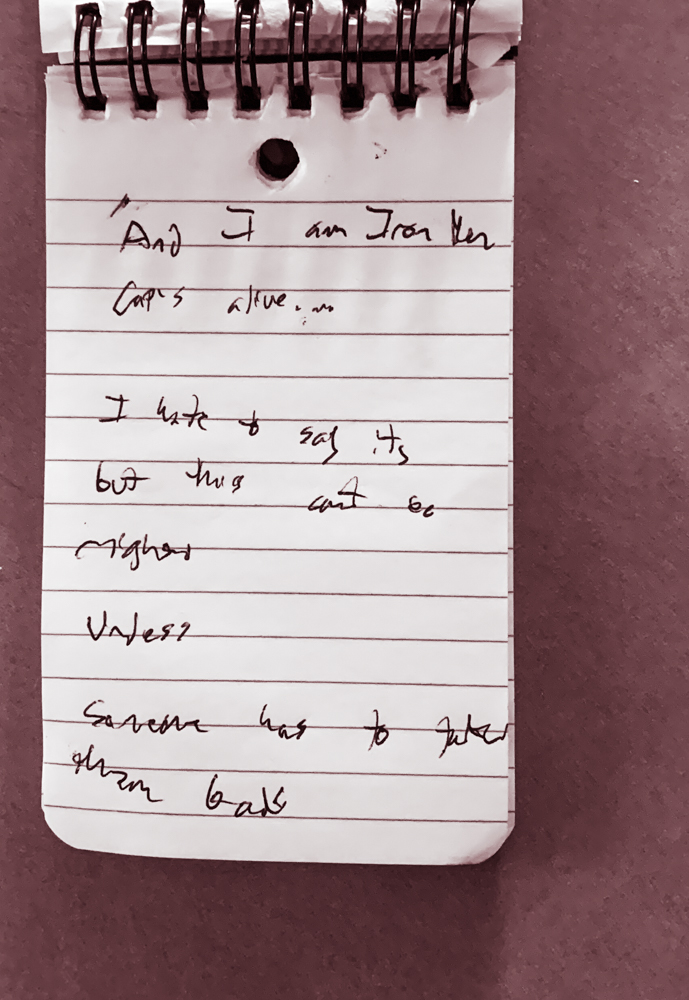 "And I am Iron Man
Cap's alive...
I hate to say it,
but this can't be
higher
Unless
Someone has to take
them back